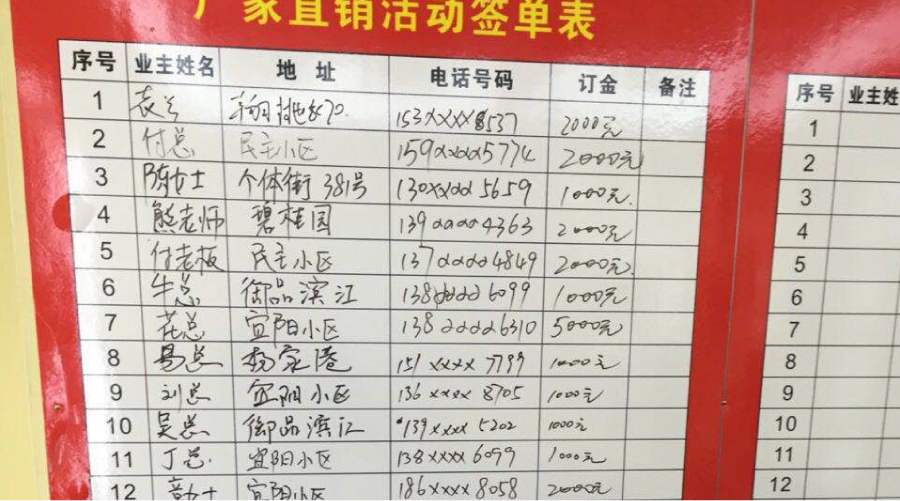 厂家直销活动签单表
序号 业主姓名 地址 电话号码 订金 备注
1 153xxxx8537 2000元
2 付总 民主小区 159xxxx5774 2000元
3 陈女士 个体街381号 130xxxx5659 1000元.
4 熊老师 碧桂园 139xxxx4363 2000元
5 付老板 民主小区 137xxxx4849 2000元.
6 牛总 御品滨江 138xxxx6099 1000元
7 花总 宜阳小区 138xxxx6310 5000元
8 易总 杨家 151xxxx7799 1000元
9 刘总 宜阳小区 136xxxx8705 1000元
10 吴总 御品滨江 139xxxx5202 1000元
11 丁总. 宜阳小区 138xxxx6099 1000元
12 女士 宜阳小区 186xxxx8058 2000元
序号 业主姓
1
2
3
4
5
6
7
8
9
10
11
12